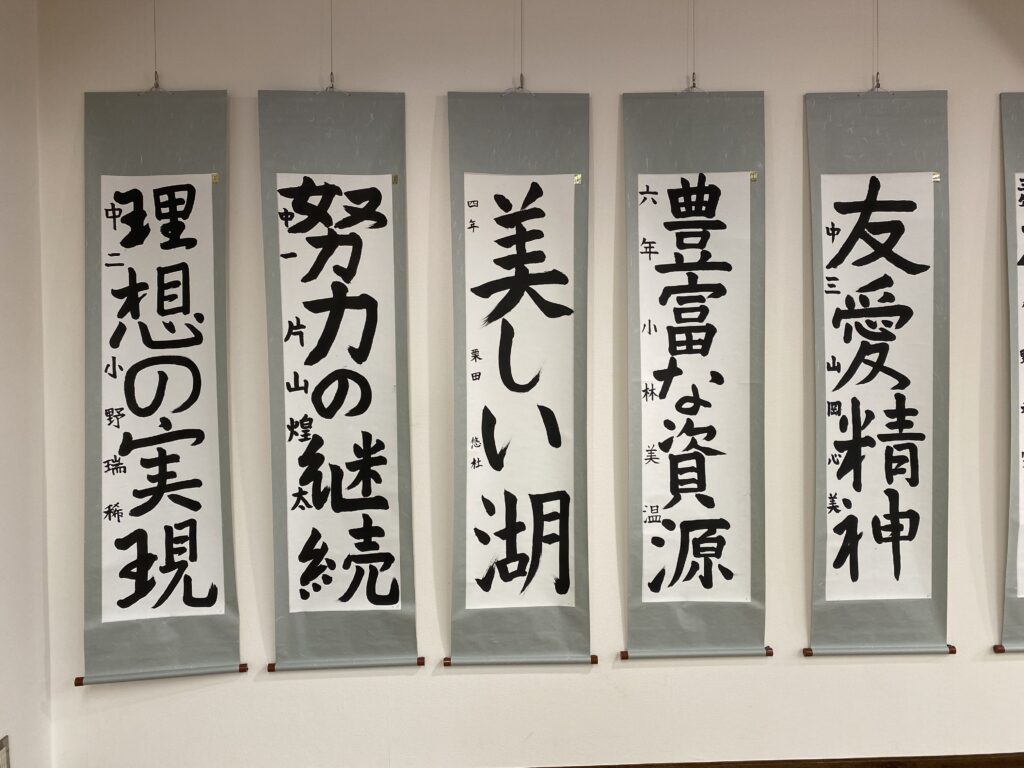 友愛精神
中三 山岡心美
豊富な資源
六年 小林美温
美しい湖
四年 栗田 悠杜
努力の継続
中一 片山煌太
理想の実現
中二 小野瑞稀